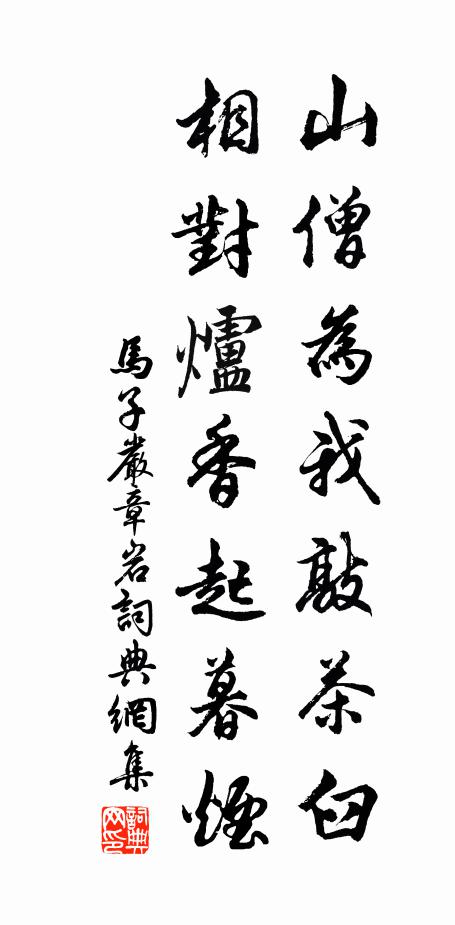 山僧為我敲茶臼
相對爐香起暮煙
馬子嚴章岩詞典網集
詞典网印